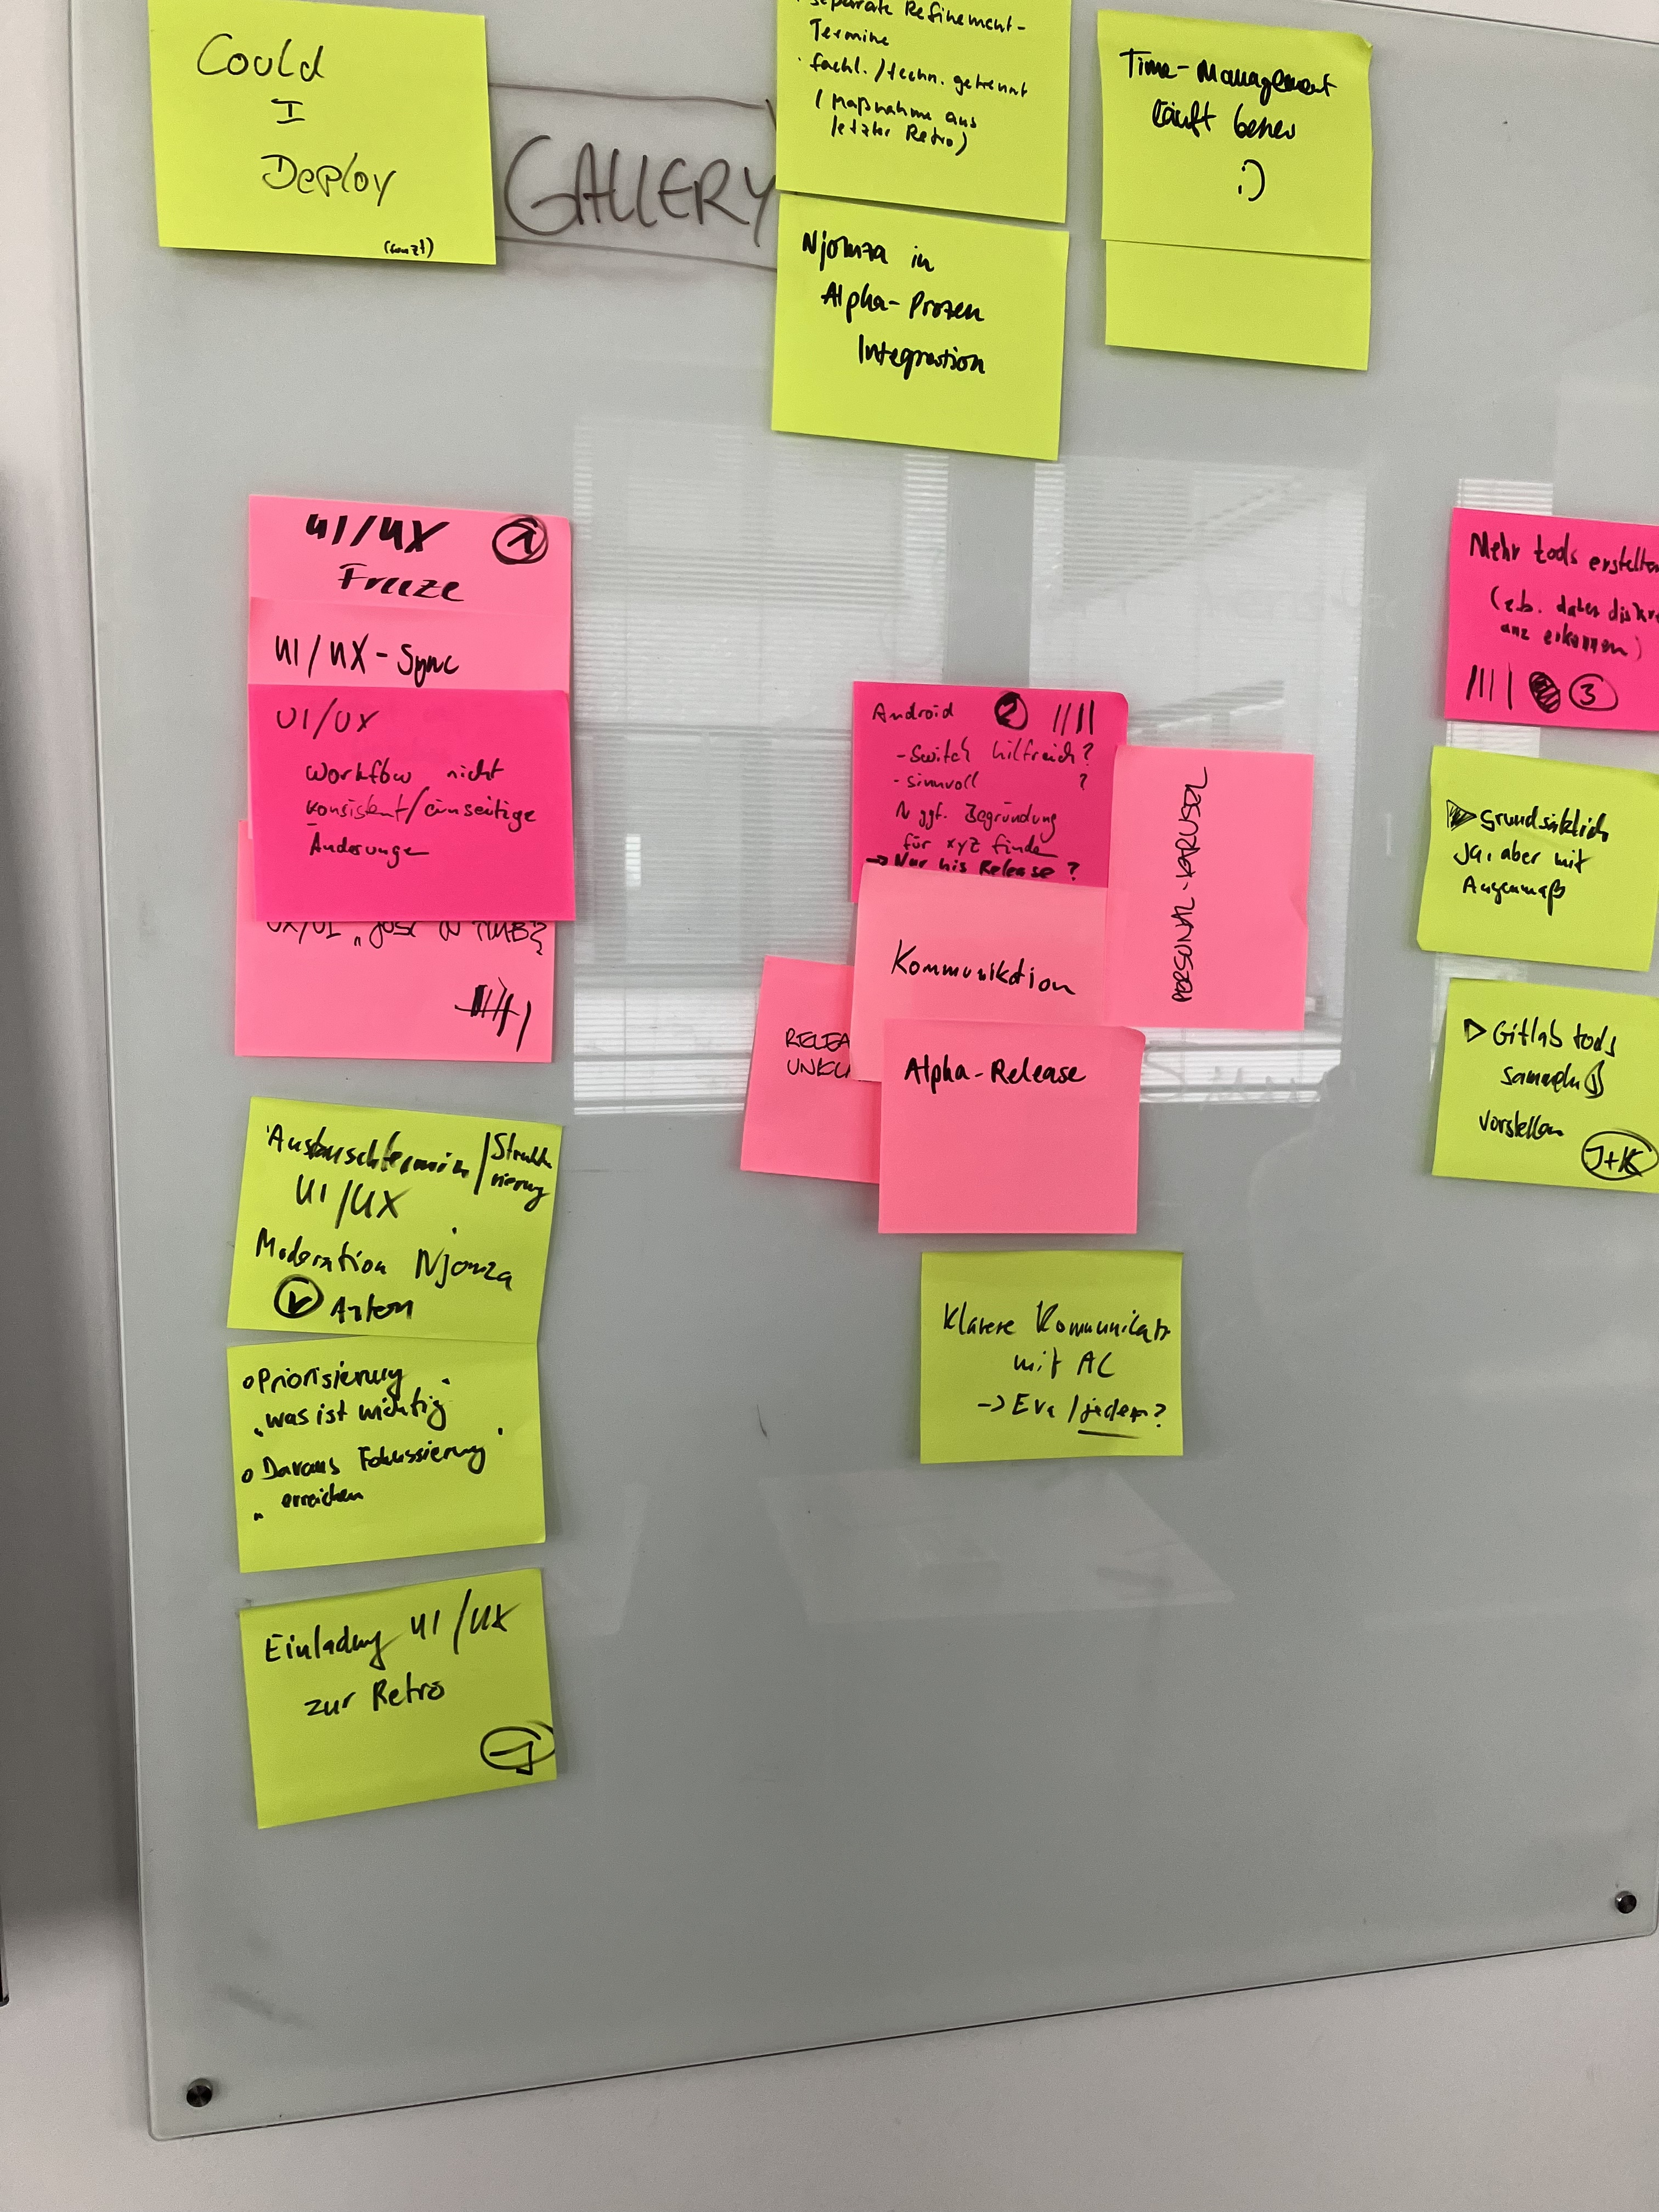 Could
I
Deploy
GALLERY
separate Refinement-
Termine
· fachl./techn. getrennt
(Maßnahme aus
letzter Retro)
Time-Management
läuft besser
:)
Njomza in
Alpha-Prozess
Integration
UI/UX 1
Freeze
UI/UX-Sync
UI/UX
Workflow nicht
konsistent/einseitige
Änderunge
UX/UI „just
Android 2 ||||
- Switch hilfreich?
- sinnvoll ?
ggf. Begründung
für xyz finden
→ Nur bis Release ?
PERSONAL-KARUSEL
Kommuniktion
RELEA
UNKL
Alpha-Release
Mehr tools erstellen
(z.b. daten diskre
anz erkennen)
|||| 3
▷ Grundsätzlich
Ja, aber mit
Augenmaß
▷ Gitlab tools
sammeln
vorstellen
J+K
Austauschtermin/Struktu
rierung
UI/UX
Moderation Njomza
Artem
o Priorisierung
„was ist wichtig
o Daraus Fokussierung
erreichen
Klarere Kommunikatn
mit AC
-> Eva / jeder?
Einladung UI/UX
zur Retro